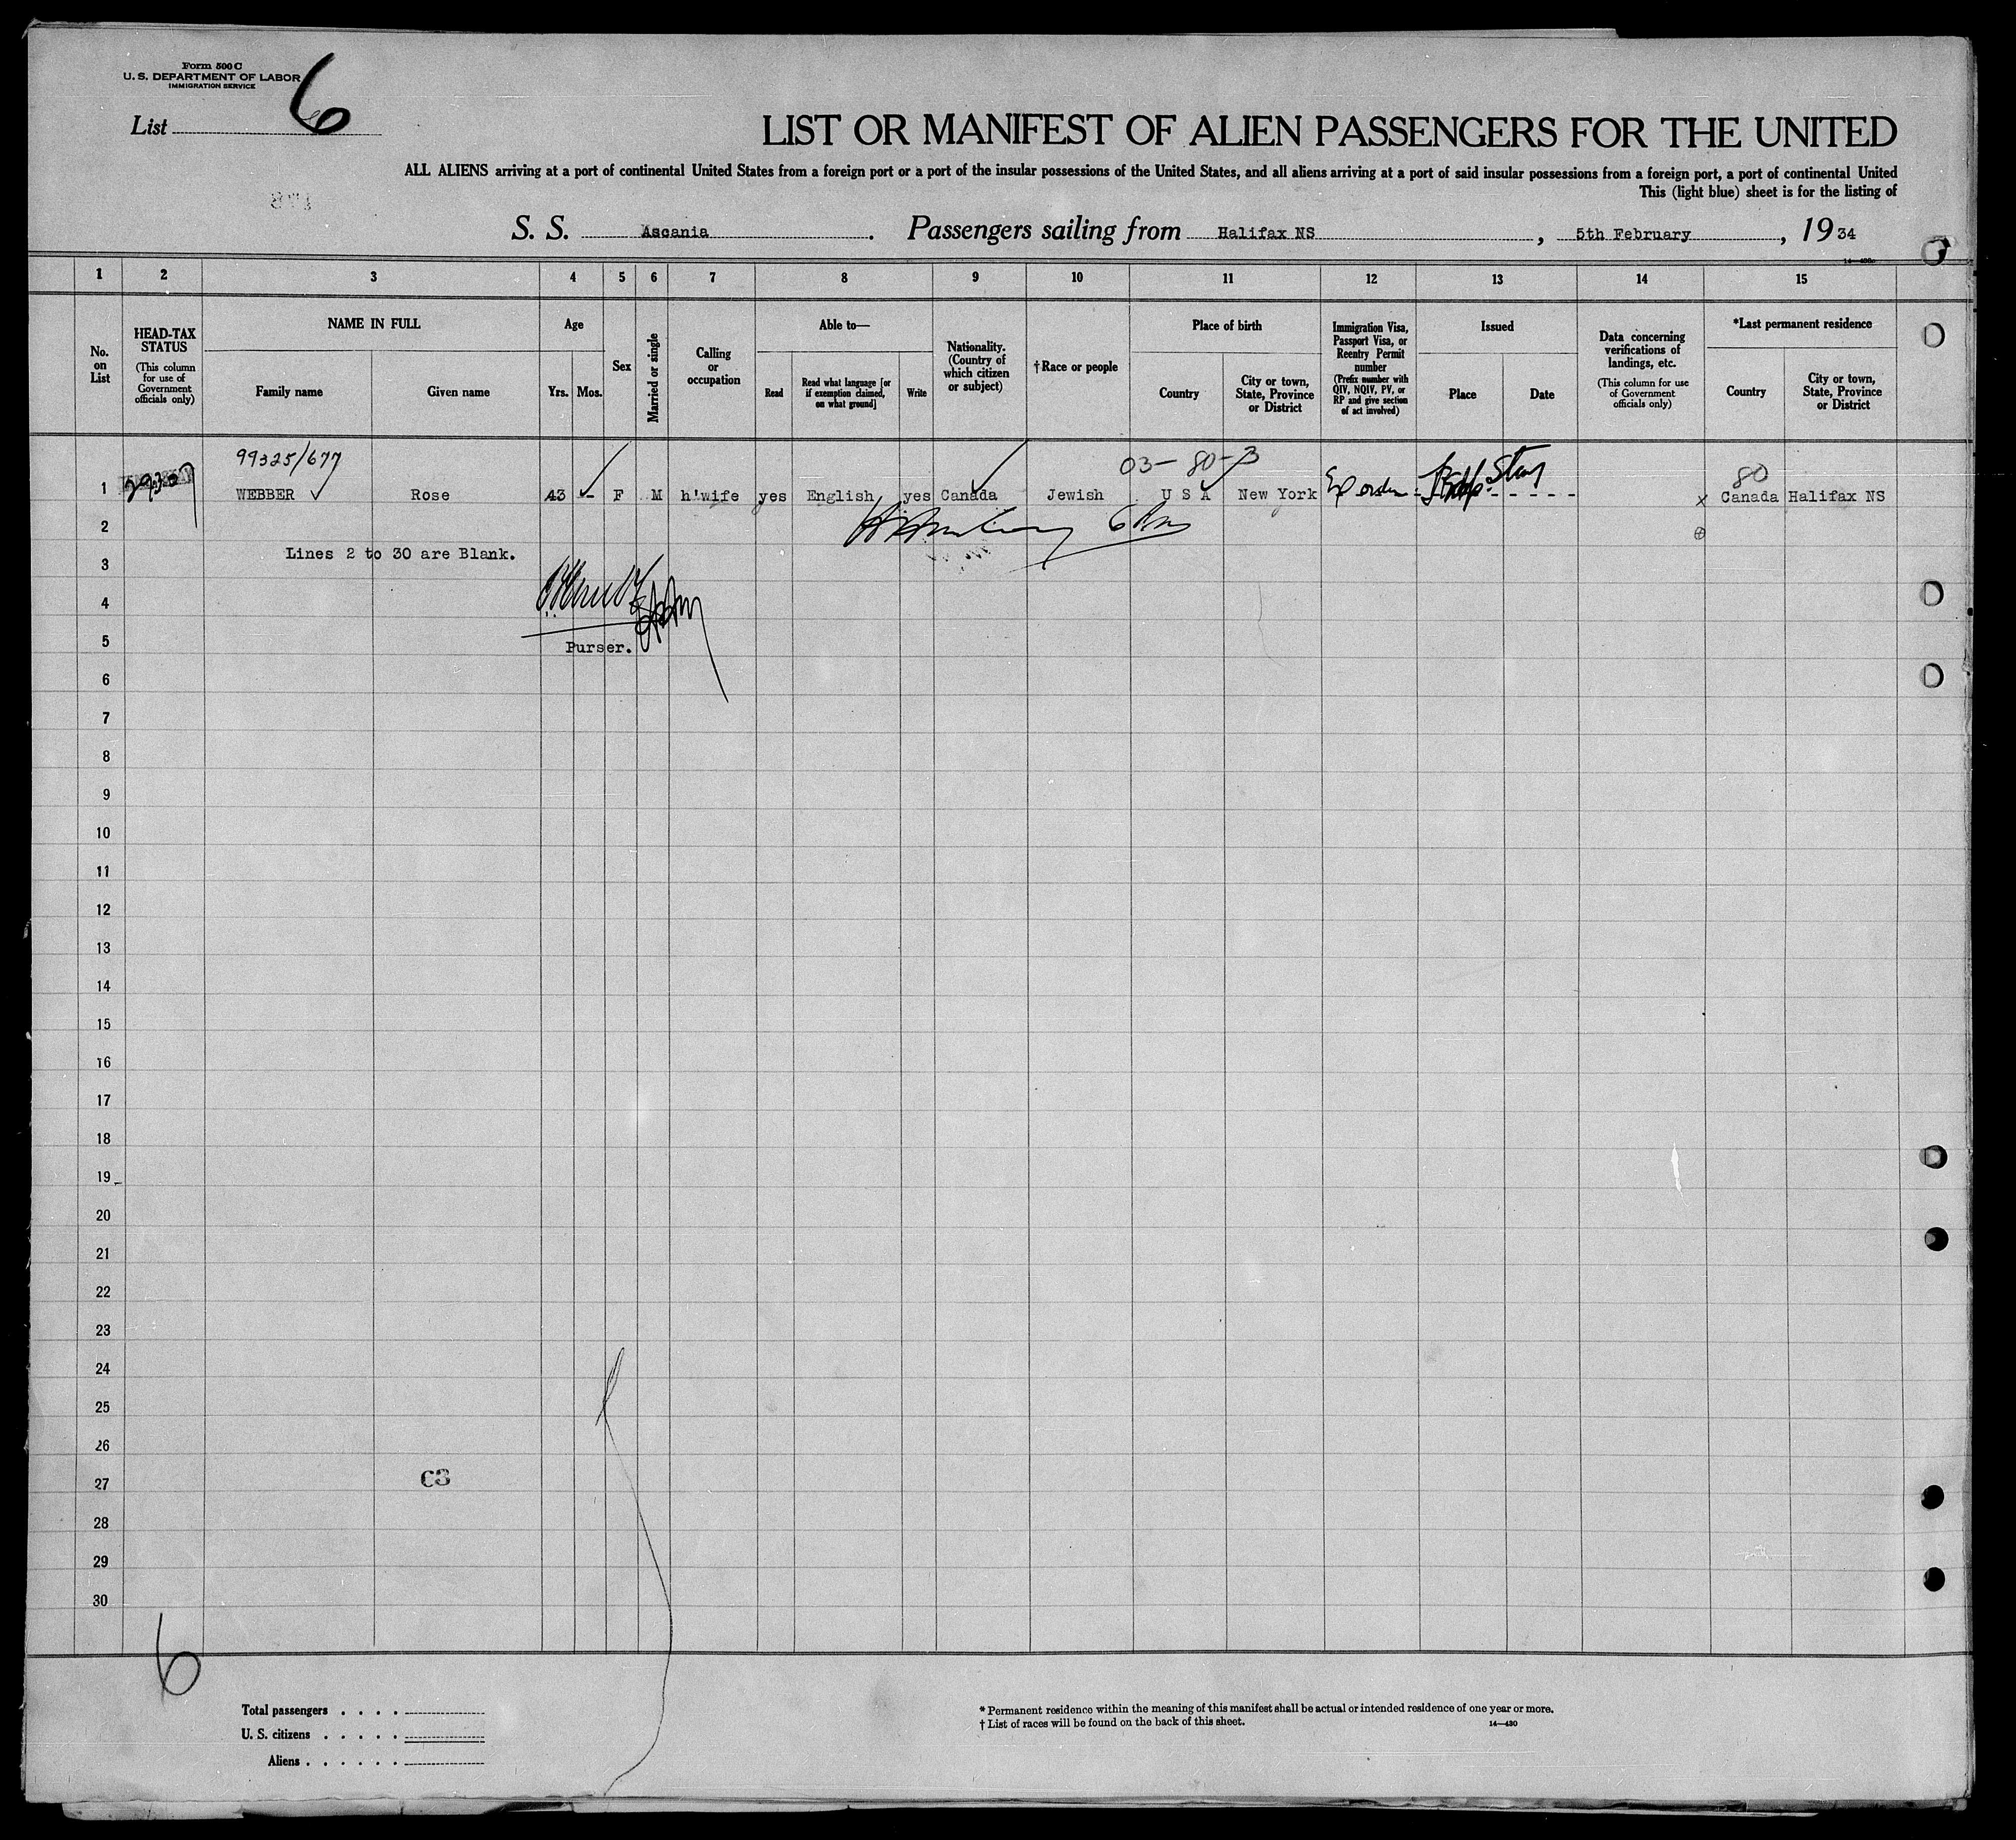 Form 500 C
U. S. DEPARTMENT OF LABOR
IMMIGRATION SERVICE
List 6
LIST OR MANIFEST OF ALIEN PASSENGERS FOR THE UNITED
ALL ALIENS arriving at a port of continental United States from a foreign port or a port of the insular possessions of the United States, and all aliens arriving at a port of said insular possessions from a foreign port, a port of continental United
This (light blue) sheet is for the listing of
S. S. Ascania. Passengers sailing from Halifax NS, 5th February, 1934
1 2 3 4 5 6 7 8 9 10 11 12 13 14 15
No. on List
HEAD-TAX STATUS
(This column for use of Government officials only)
NAME IN FULL
Family name
Given name
Age
Yrs.
Mos.
Sex
Married or single
Calling or occupation
Able to—
Read
Read what language [or if exemption claimed, on what ground]
Write
Nationality. (Country of which citizen or subject)
†Race or people
Place of birth
Country
City or town, State, Province or District
Immigration Visa, Passport Visa, or Reentry Permit number
(Prefix number with QIV, NQIV, PV, or RP and give section of act involved)
Issued
Place
Date
Data concerning verifications of landings, etc.
(This column for use of Government officials only)
*Last permanent residence
Country
City or town, State, Province or District
99325/677
03-80-3
80
1 WEBBER Rose 43 - F M h'wife yes English yes Canada Jewish U S A New York Canada Halifax NS
2
Lines 2 to 30 are Blank.
3
4
5
Purser.
6
7
8
9
10
11
12
13
14
15
16
17
18
19
20
21
22
23
24
25
26
27
C3
28
29
30
6
Total passengers . . . .
U. S. citizens . . . . .
Aliens . . . . . .
* Permanent residence within the meaning of this manifest shall be actual or intended residence of one year or more.
† List of races will be found on the back of this sheet.
14—430